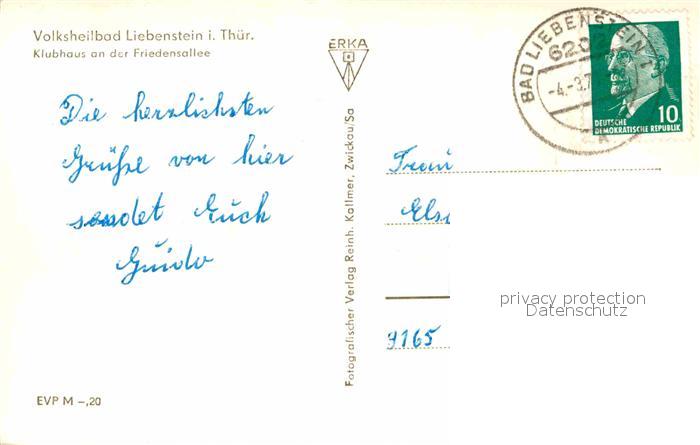 Volksheilbad Liebenstein i. Thür.
Klubhaus an der Friedensallee
ERKA
BAD LIEBENSTEIN
620
-4.-3.7
DEUTSCHE
DEMOKRATISCHE REPUBLIK
10
Die herzlichsten
Grüße von hier
sendet Euch
Guido
Fotografischer Verlag Reinh. Kallmer, Zwickau/Sa
9165
privacy protection
Datenschutz
EVP M –,20